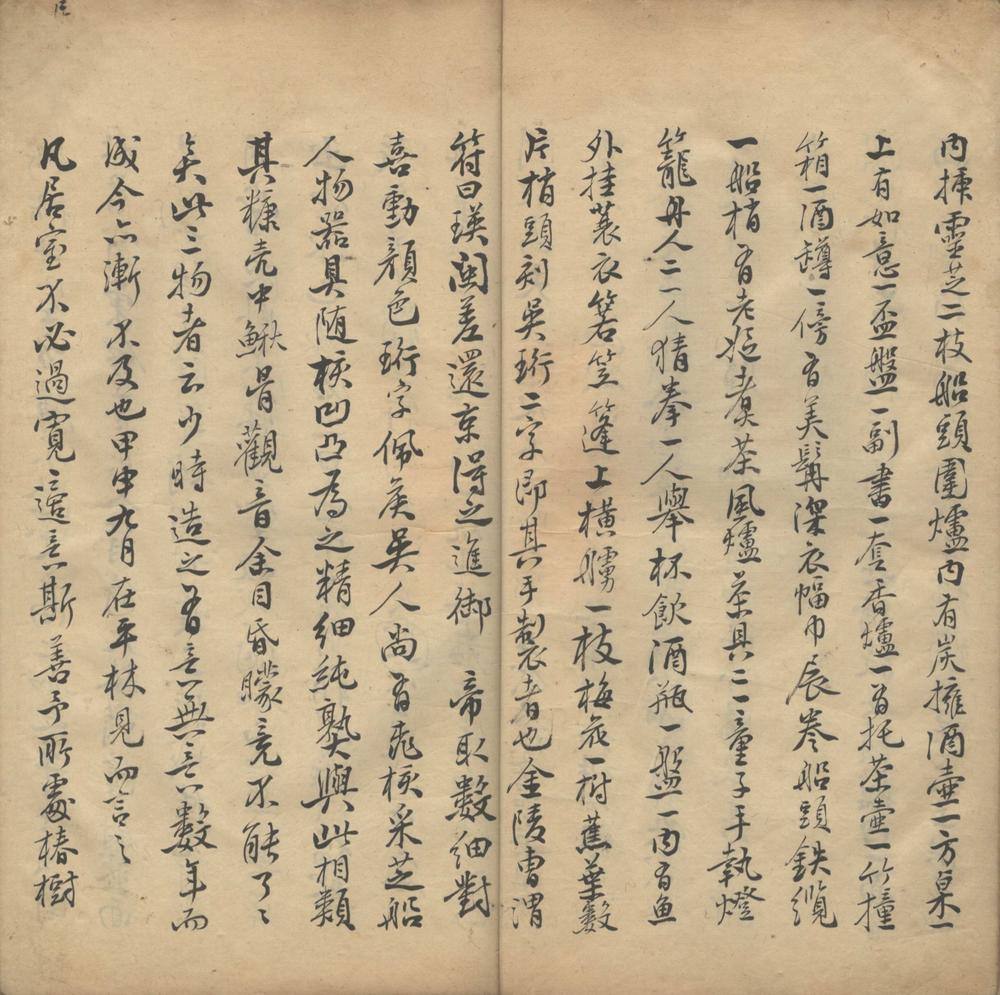 内插靈芝二枝船頭圍爐內有炭擁酒壺一方桌一
上有如意一盃盤一副書一套香爐一有托茶壺一竹撞
箱一酒罇一傍有美髯深衣幅巾展卷船頭鉄纜
一船梢有老嫗煮茶風爐茶具二童子手執燈
籠舟人二一人猜拳一人舉杯飲酒瓶一盤一内有魚
外挂蓑衣箬笠篷上橫艣一枝梅花一樹蕉葉數
片梢頭刻吳珩二字即其手製者也金陵曹渭
符曰瑛閩差還京得之進御 帝取數細對
喜動顏色珩字佩羙吳人尚有飛核采芝船
人物器具随核凹凸為之精細純熟與此相類
其糠壳中鰍骨觀音余目昏矇竟不能了了
矣此三物者云少時造之有意無意數年而
成今亦漸不及也甲申九月在平林見而言之
凡居室不必過寬適意斯善予所處椿樹